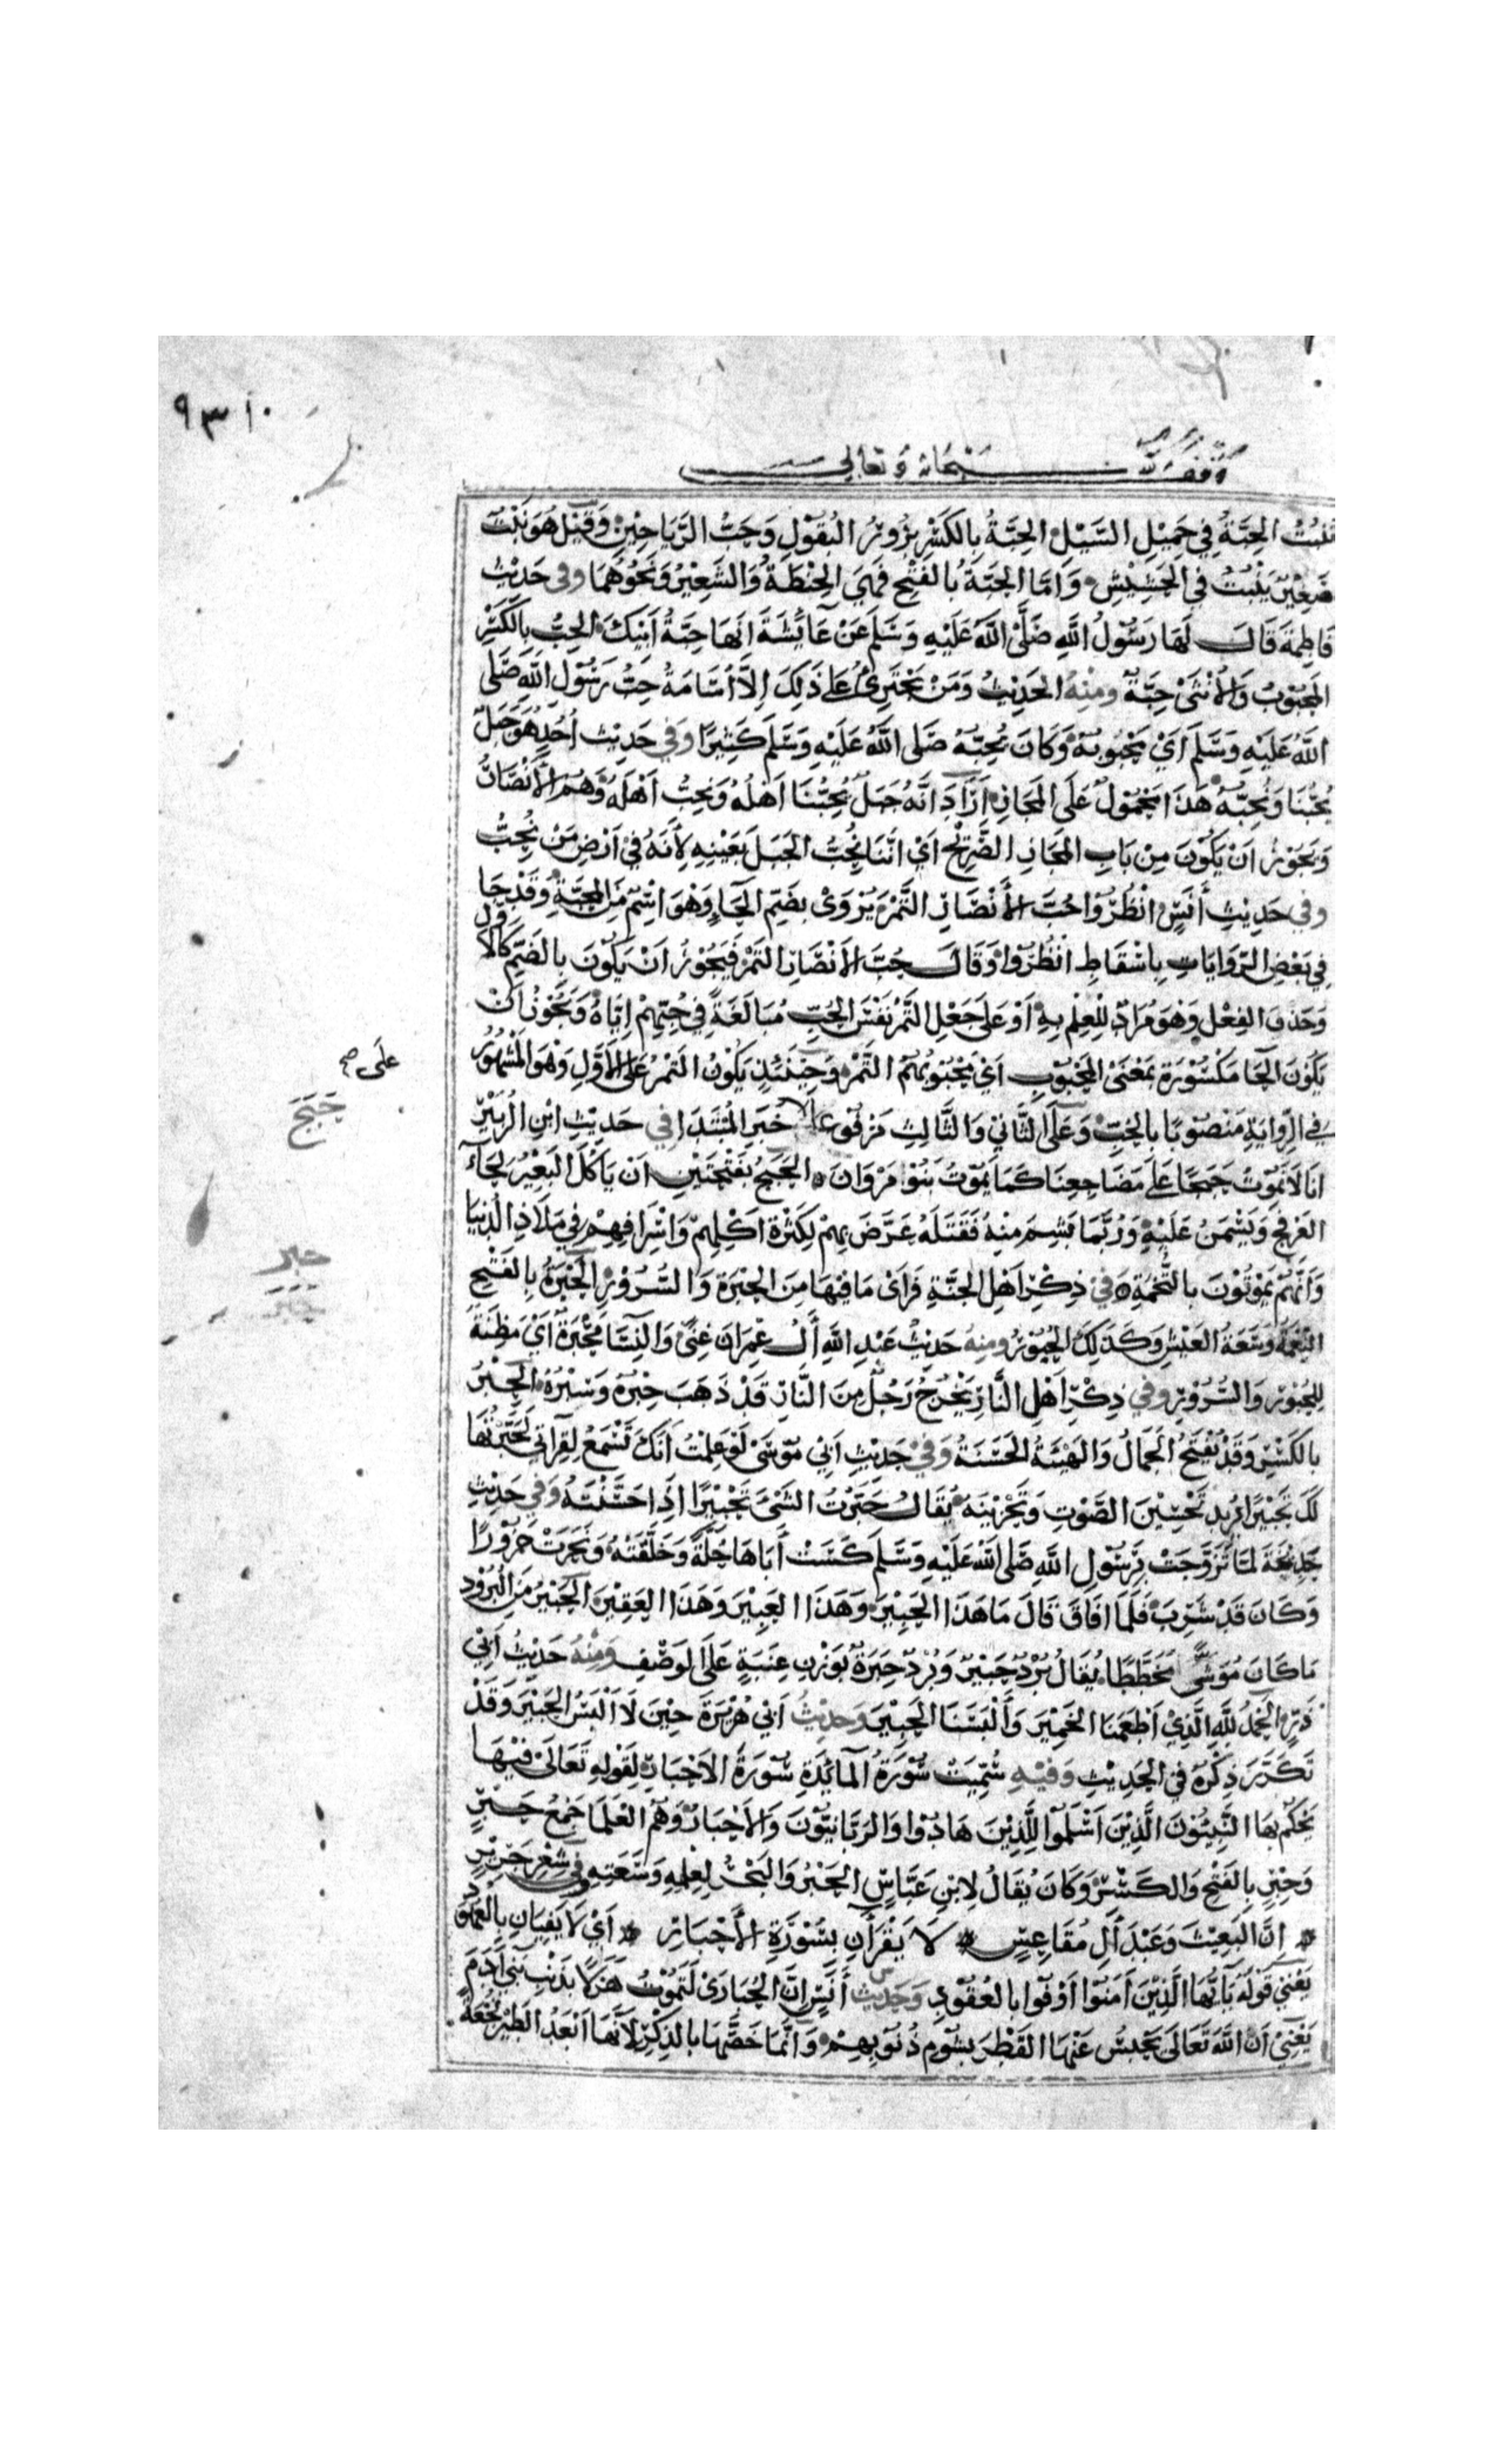 ٩٣١٠
وقف لله سبحانه وتعالى
تَنبُتُ الحِبَّةُ في حَمِيلِ السَّيْلِ الحِبَّةُ بِالكَسْرِ بُزُورُ البُقُولِ وَحَبُّ الرَّيَاحِيْنِ وَقِيْلَ هُوَ نَبْتٌ
صَغِيْرٌ يَنْبُتُ في الحَشِيْشِ وَامَّا الحَبَّةُ بُالفَتْحِ فَهِيَ الحِنْطَةُ وَالشَّعِيْرُ وَنَحْوُهُمَا وفي حَدِيْثِ
فَاطِمَةَ قَالَ لَهَا رَسُوْلُ اللهِ صَلَّى اللهُ عَلَيْهِ وَسَلَم عَنْ عَائِشَةَ اِنَهَا حِبَّةُ أَبِيْكَ الحِبُّ بِالكَسْرِ
المَحْبُوْبُ وَالأُنْثَى حِبَّةٌ ومِنْهُ الحَدِيْثُ وَمَنْ يَجْتَرِئُ عَلى ذَلِكَ اِلاَّ أُسَامَةُ حِبُّ رَسُوْلِ اللهِ صَلى
اللهُ عَلَيْهِ وَسَلَّمَ اَيْ مَحْبُوبُهُ وَكَانَ يُحِبُّهُ صَلى اللهُ عَلَيْهِ وَسَلَّمَ كَثِيْرًا وَفي حَدِيْث اُحُدٍ هُوَ جَبَلٌ
يُحِبُّنَا وَنُحِبُّهُ هَذَا مَحْمُوْلٌ عَلَى المَجَازِ اَرَادَ اَنَّهُ جَبَلٌ يُحِبُّنَا اَهْلُهُ وَنُحِبُّ اَهْلَهُ وَهُمُ الأَنْصَارُ
وَيَجُوْزُ اَنْ يَكُوْنَ مِنْ بَابِ المَجَازِ الصَّرِيْحِ اَيْ اَنَّنَا نُحِبُّ الجَبَلَ بِعَيْنِهِ لِأَنَهُ فيْ اَرْضِ مَنْ نُحِبُّ
وفي حَدِيْثِ أَنَسٍ انْظُرُوْا حُبَّ الأَنْصَارِ التَّمْرَ يُرْوَىْ بِضَمِّ الحَاءِ وَهْوَ اسْمٌ مِنَ المَحَبَّةِ وَقَدْ جَا
فِي بَعْضِ الرِّوَايَاتِ بِاسْقَاطِ انْظُرُوْا وَقَالَ حُبَّ الأَنْصَارِ التَمْرَ فَيَجُوْزُ اَنْ يَكُوْنَ بِالضَمِّ كَالأَوّل
وَحَذَفَ الفِعْلَ وَهْوَ مُرَادٌ لِلْعِلْمِ بِهِ أَوْ عَلى جَعْلِ التَّمْرِ نَفْسَ الحُبِّ مُبَالَغَةً فِي حُبِّهِمْ اِيَّاهُ وَيَجُوْزُ اَنْ
يَكُوْنَ الحَا مَكْسُوْرَةً بِمَعْنَى المَحْبُوْبِ اَيْ مَحْبُوْبُهُمُ التَّمْرُ وَحِيْنَئِذٍ يَكُوْنُ التَمْرُ عَلى الأَوَّلِ وَهْوَ المَشْهُوْرُ
على صح
في الرِّوَايَةِ مَنْصُوْبًا بِالحُبِّ وَعَلَى الثَّانِيْ وَالثَّالِثِ مَرْفُوْعًا خَبَرِ المُبْتَدَا في حَدِيْثِ ابْنِ الزُبَيْرِ
حَبَجَ
انا لاَ نَمُوْتُ حَبَجًا عَلى مَضَاجِعِنَا كَمَا يَمُوْتُ بَنُوْ مَرْوَانَ الحَبَجُ بِفَتْحَتَيْنِ اَنْ يَاكُلَ البَعِيْرُ لِحَاءَ
العَرفَجِ وَيَسْمَنُ عَلَيْهِ وَرُبَّمَا بَشِمَ مِنْهُ فَقَتَلَهُ عَرَّضَ بِهِمْ لِكَثْرَةِ اَكْلِهِمْ وَاسْرَافِهِمْ في مَلاَذِ الدُنْيَا
حبر
وَاَنَّهُمْ يَمُوْتُوْنَ بالتُّخْمَةِ في ذِكْرِ اَهْلِ الجَنَّةِ فَرَأَىْ مَا فِيْهَا مِنَ الحَبْرَةِ وَالسُّرُوْرِ الحَبْرَةُ بِالفَتْحِ
النِّعْمَةُ وَسَعَةُ العَيْشِ وَكَذَلِكَ الحُبُوْرُ ومِنه حَدِيْثُ عَبْدِ اللهِ أٓلُ عِمْرَانَ غِنًى وَالنِّسَا مَحْبَرَةٌ اَيْ مَظِنَّةٌ
لِلحُبُوْرِ وَالسُّرُوْرِ وفي ذِكْرِ اَهْلِ النَّارِ يَخْرُجُ رَجُلٌ مِنَ النَّارِ قَدْ ذَهَبَ حِبْرُهُ وَسِبْرُهُ الحِبْرُ
بالكَسْرِ وَقَدْ يُفْتَحُ الجَمَالُ وَالهَيْئَةُ الحَسَنَةُ وَفيْ حَدِيْثِ اَبِي مُوْسَىْ لَوْ عَلِمْتُ اَنَّكَ تَسْمَعُ لِقِرآتي لَحَبَّرْتُهَا
لَكَ تَحْبِيْرًا يُرِيْد تَحْسِيْنَ الصَّوْتِ وَتَحْزِيْنَهُ يُقَالُ حَبَّرْتُ الشَّىْءَ تَحْبِيْرًا اِذَا حَسَّنْتَهُ وَفي حَدِيْثِ
خَدِيْجَةَ لَمَّا تَزَوَّجَتْ بِرَسُوْلِ اللهِ صَلى اللهُ عَلَيْهِ وَسَلَّمَ كَسَتْ أَبَاهَا حُلَّةً وَخَلَّقَتْهُ وَنَحَرَتْ جَزُوْرًا
وَكَانَ قَدْ شَرِبَ فَلَمَّا افَاقَ قَالَ مَا هَذَا الحَبِيْرُ وَهَذَا العَبِيْرُ وَهَذَا العَقِيْرُ الحَبِيْرُ مِنَ البُرُوْدِ
مَا كَانَ مُوَشًّى مُخَطَّطًا يُقَالُ بُرْدٌ حَبِيْرٌ وَبُرْدٌ حِبَرَةٌ بِوَزْنِ عِنَبَةٍ عَلَى الوَصْفِ وَمِنْهُ حَدِيْثُ اَبِي
ذَرٍّ الحَمدُ لِلّهِ الَّذِيْ اَطْعَمَنَا الخَمِيْرَ وَأَلْبَسَنَا الحَبِيْرَ وَحَدِيْثُ اَبي هُرَيْرَةَ حِيْنَ لاَ اَلْبَسُ الحَبِيْرَ وَقَدْ
تَكَرَّرَ ذِكْرُهُ في الحَدِيْثِ وَفيْهِ سُمِّيَتْ سُوْرَةُ المَائِدَةِ سُوْرَةَ الاَحْبَارِ لِقَوْلِهِ تَعَالَىْ فِيْهَا
يَحْكُمُ بِهَا النَّبِيُّوْنَ الَّذِيْنَ اَسْلَمُوْا لِلَّذِيْنَ هَادُوْا وَالرَبَّانِيُّوْنَ وَالأَحْبَارُ وَهُمُ العُلَمَا جَمْعُ حَبْرٍ
وَحِبْرٍ بِالفَتْحِ وَالكَسْرِ وَكَانَ يُقَالُ لاِبْنِ عَبَّاسٍ الحَبْرُ وَالبَحْرُ لِعِلْمِهِ وَسَعَتِهِ وفي شِعْرِ جَرِيْرٍ
اِنَّ البَعِيْثَ وَعَبْدَ آلِ مُقَاعِسٍ * لاَ يَقْرَأَنِ بِسُوْرَةِ الأَحْبَارِ * اَيْ لاَ يَفِيَانِ بِالعُهُوْدِ
يَعْنِي قَوْلَهُ يَآ أَيُّهَا الَّذِيْنَ آمَنُوْا أَوْفُوْا بالعُقُوْدِ وَحَدِيْثِ أَنَسٍ اِنَّ الحُبَارَىْ لَتَمُوْتُ هَزَلاً بِذَنْبِ بَنِيْ اۤدَمَ
يَعْنِيْ اَنَّ اللهَ تَعَالَى يَحْبِسُ عَنْهَا القَطْرَ بِشُوْمِ ذُنُوْبِهِمْ وَاِنَّمَا خَصَّهَا بالذِكْرِ لاَنَّهَا اَبْعَدُ الطَيْرِ نُجْعَةً